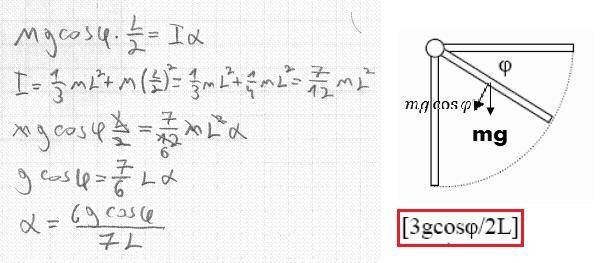 mg cosφ · L/2 = Iα
I = 1/3 mL² + m(L/2)² = 1/3 mL² + 1/4 mL² = 7/12 mL²
mg cosφ L/2 = 7/12 6 mL² α
g cosφ = 7/6 Lα
α = 6g cosφ / 7L
φ
mg cosφ
mg
[3gcosφ/2L]